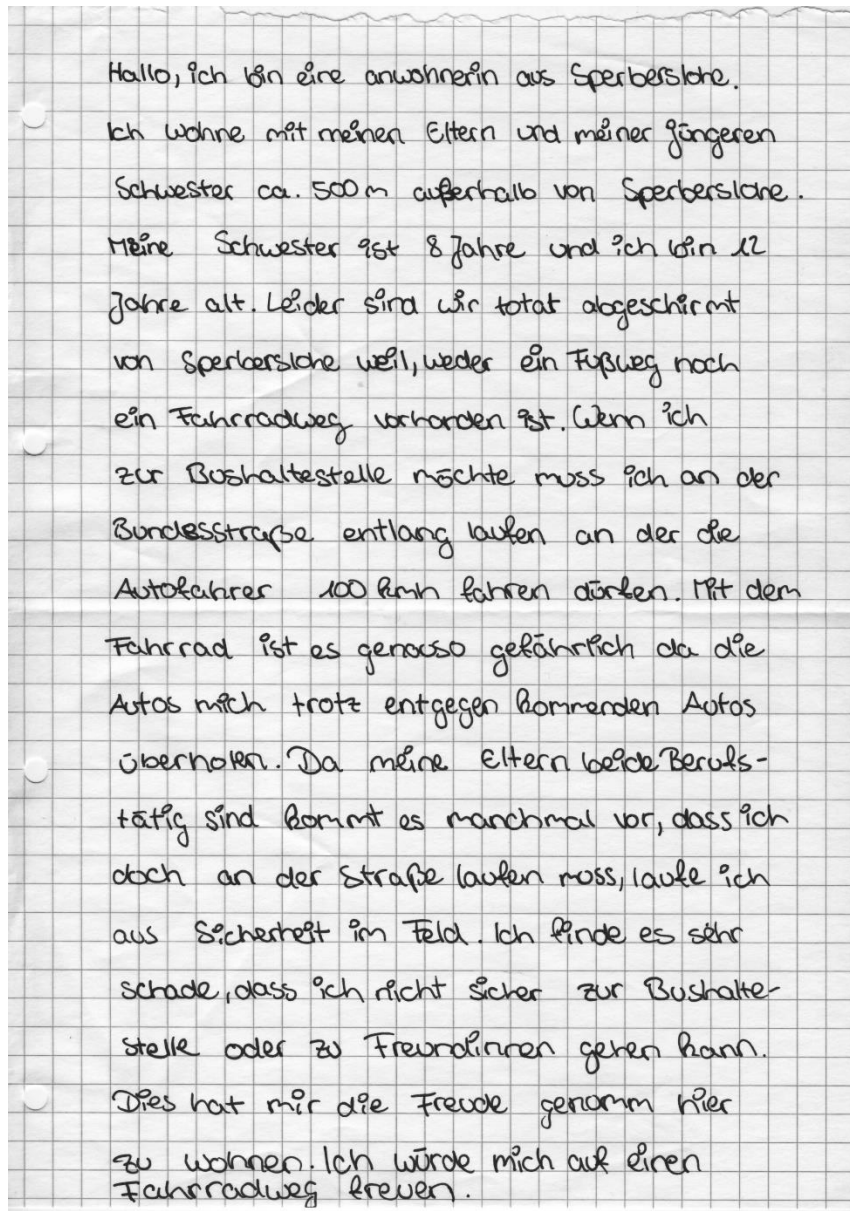 Hallo, ich bin eine anwohnerin aus Sperberslohe.
Ich wohne mit meinen Eltern und meiner jüngeren
Schwester ca. 500 m außerhalb von Sperberslohe.
Meine Schwester ist 8 Jahre und ich bin 12
Jahre alt. Leider sind wir total abgeschirmt
von Sperberslohe weil, weder ein Fußweg noch
ein Fahrradweg vorhanden ist. Wenn ich
zur Bushaltestelle möchte muss ich an der
Bundesstraße entlang laufen an der die
Autofahrer 100 kmh fahren dürfen. Mit dem
Fahrrad ist es genauso gefährlich da die
Autos mich trotz entgegen kommenden Autos
überholen. Da meine Eltern beide Berufs-
tätig sind kommt es manchmal vor, dass ich
doch an der Straße laufen muss, laufe ich
aus Sicherheit im Feld. Ich finde es sehr
schade, dass ich nicht sicher zur Bushalte-
stelle oder zu Freundinnen gehen kann.
Dies hat mir die Freude genomm hier
zu wohnen. Ich würde mich auf einen
Fahrradweg freuen.